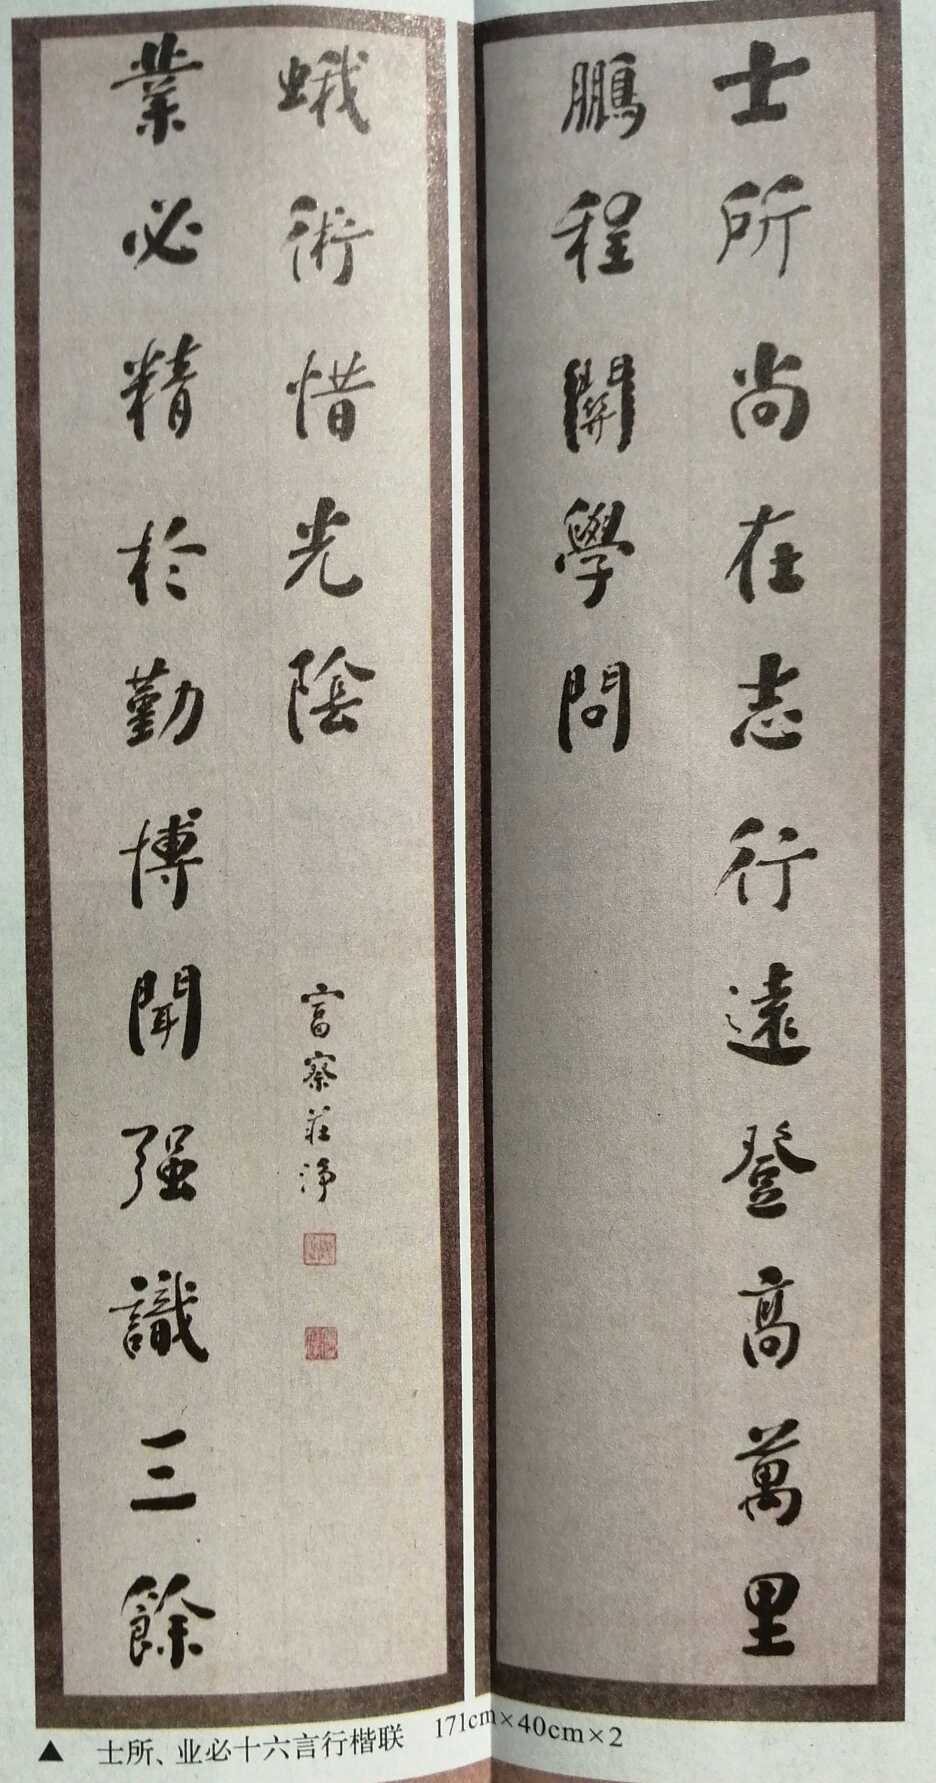 士所尚在志行遠登高萬里
鵬程開學問
業必精於勤博聞强識三餘
蛾術惜光陰
富察莊淨
▲ 士所、业必十六言行楷联 171cm×40cm×2